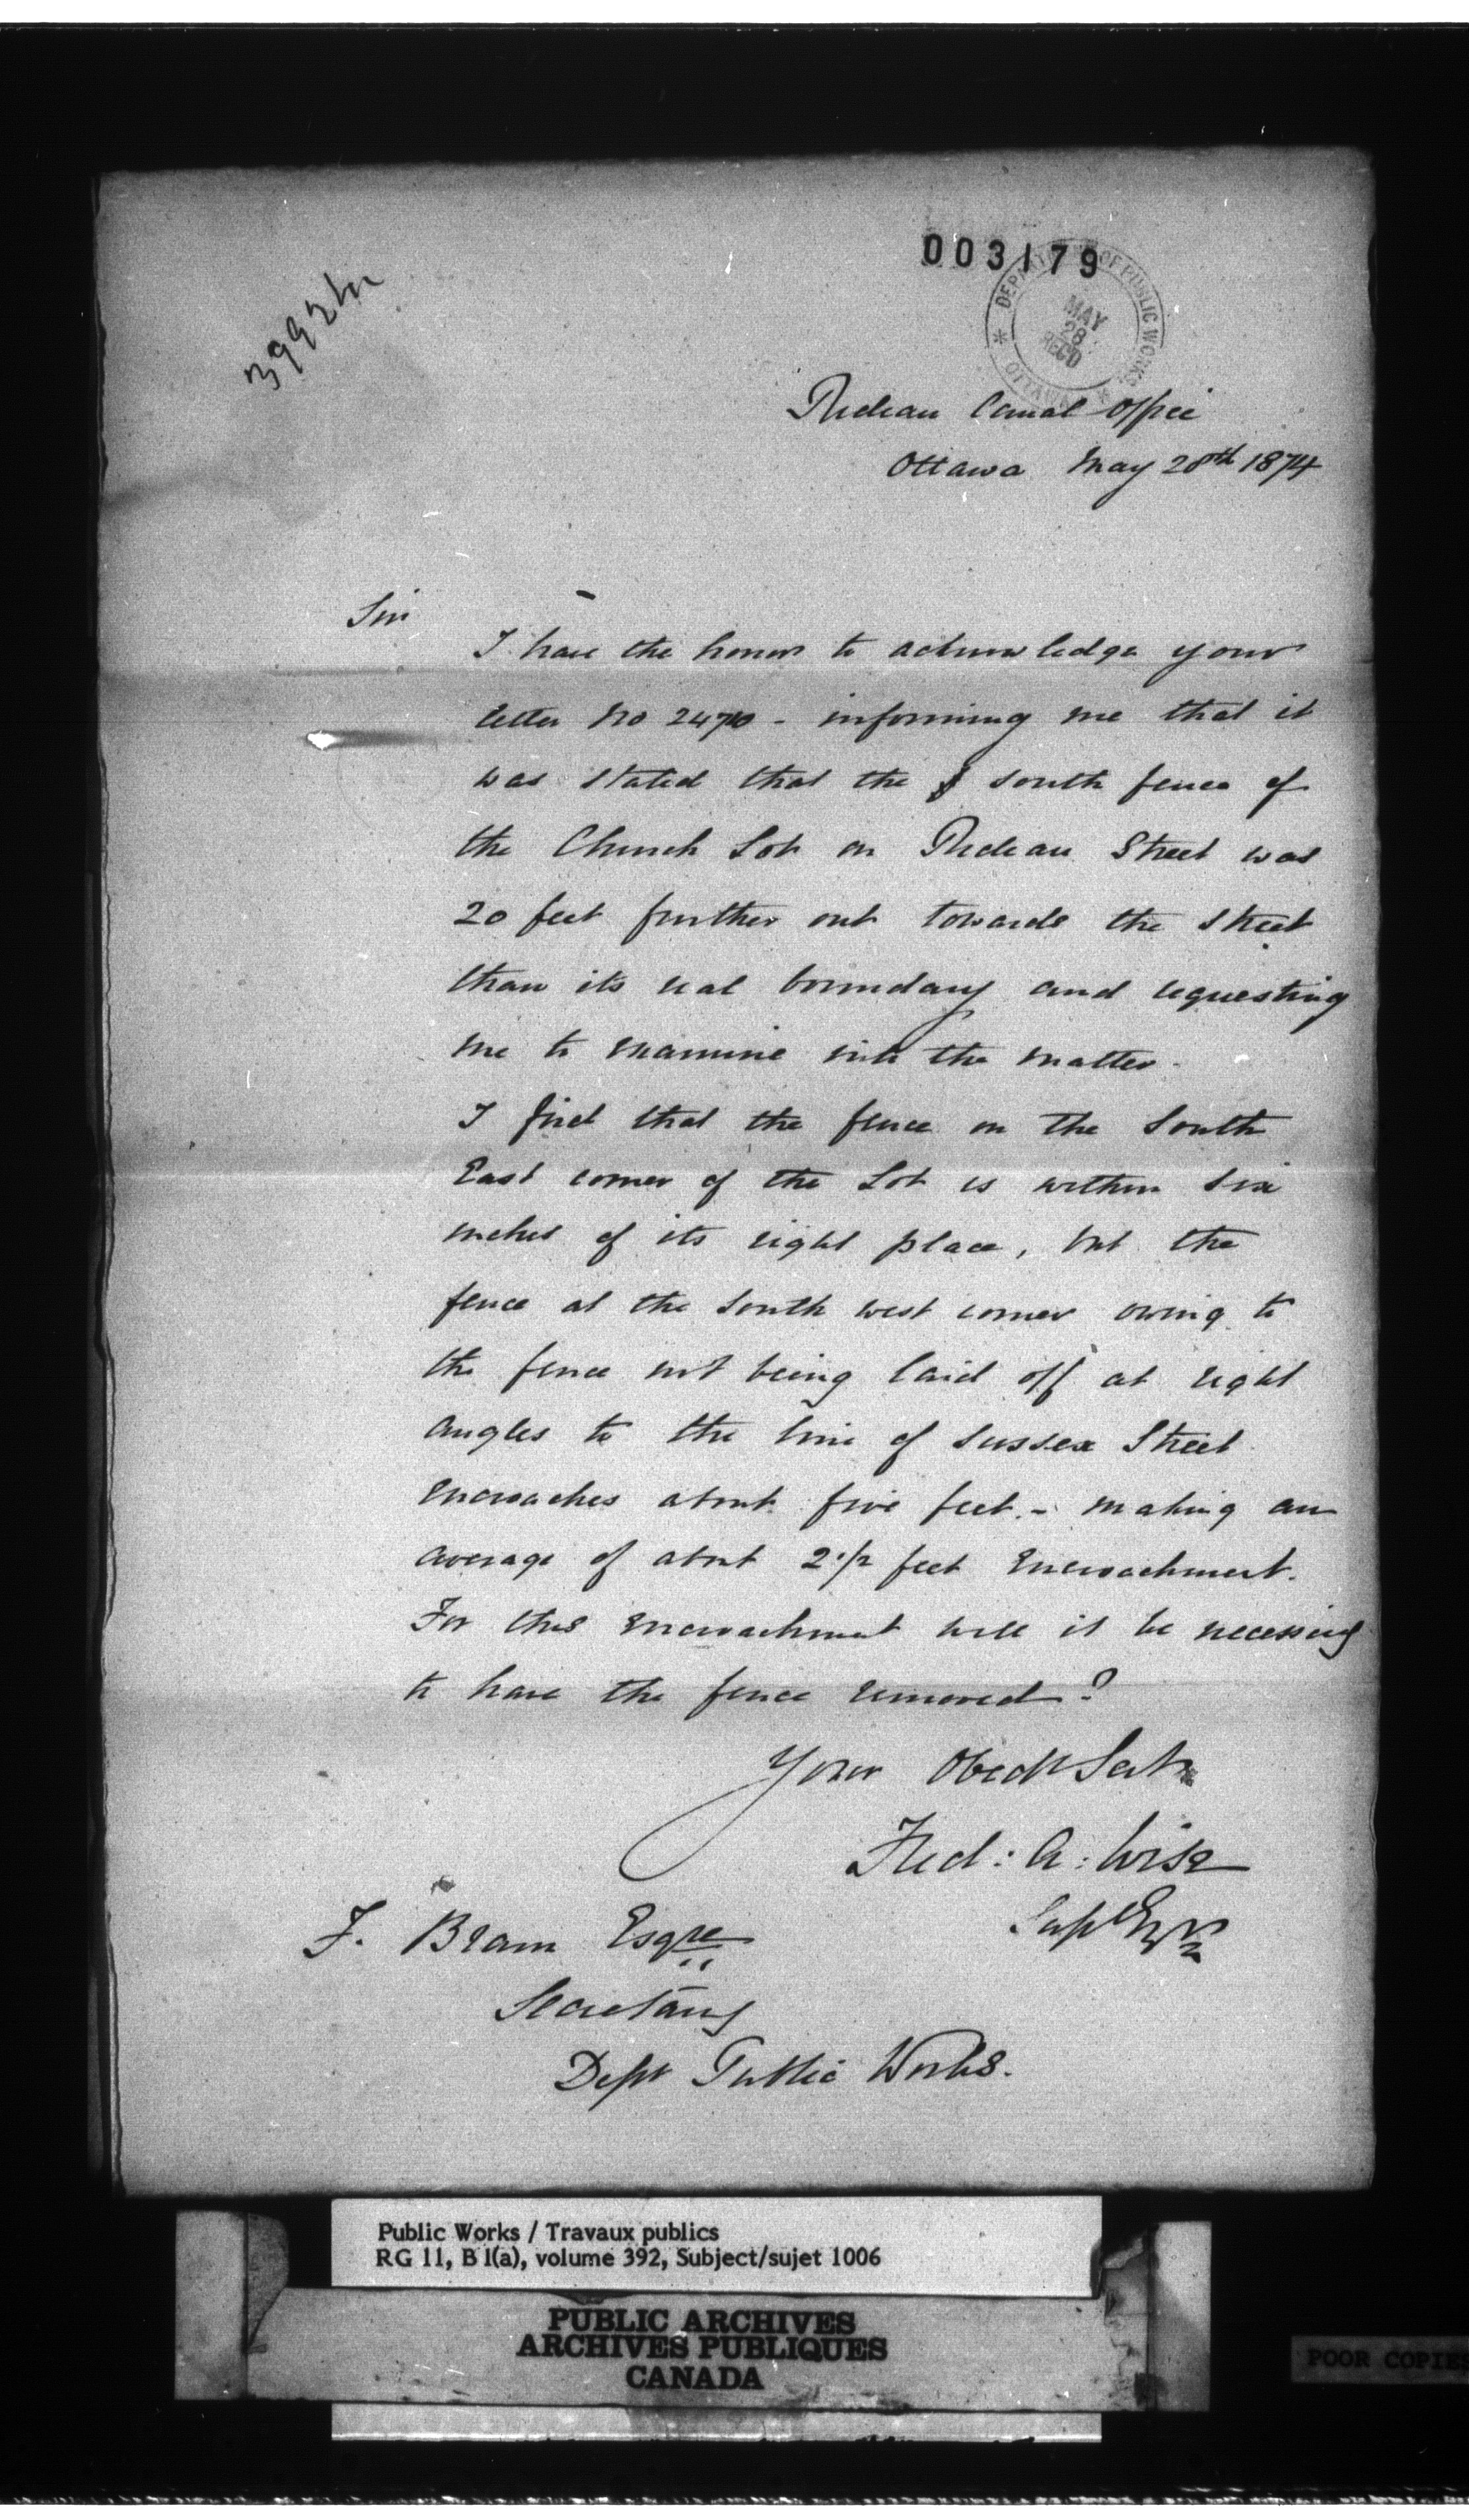 003179
39924
DEPARTMENT OF PUBLIC WORKS
MAY
28
REC'D
OTTAWA
Rideau Canal Office
Ottawa May 28th 1874
Sir
I have the honor to acknowledge your
letter No - informing me that it
was stated that the south fence of
the Church Lot on Rideau Street was
20 feet further out towards the street
than its real boundary and requesting
me to examine into the matter.
I find that the fence on the South
East corner of the Lot is within six
inches of its right place, but the
fence at the South west corner owing to
the fence not being laid off at right
angles to the line of Sussex Street
encroaches about five feet. - making an
average of about 2 1/2 feet encroachment.
For this encroachment will it be necessary
to have the fence removed?
Your Obedt Servt
Fred: A: Wise
Supt Engr
F. Braun Esqre
Secretary
Dept Public Works.
Public Works / Travaux publics
RG 11, B 1(a), volume 392, Subject/sujet 1006
PUBLIC ARCHIVES
ARCHIVES PUBLIQUES
CANADA
POOR COPIES